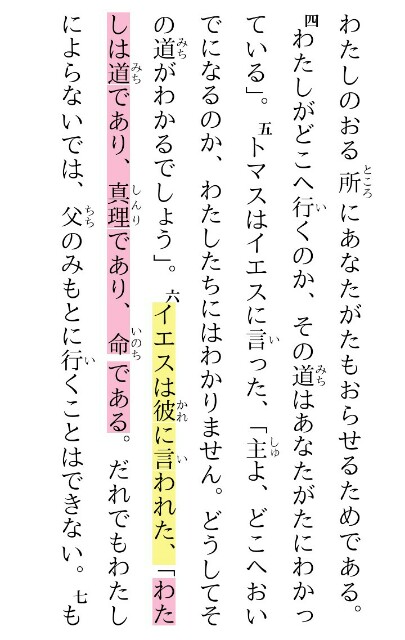 わたしのおる所にあなたがたもおらせるためである。
四わたしがどこへ行くのか、その道はあなたがたにわかっ
ている」。五トマスはイエスに言った、「主よ、どこへおい
でになるのか、わたしたちにはわかりません。どうしてそ
の道がわかるでしょう」。六イエスは彼に言われた、「わた
しは道であり、真理であり、命である。だれでもわたし
によらないでは、父のみもとに行くことはできない。七も